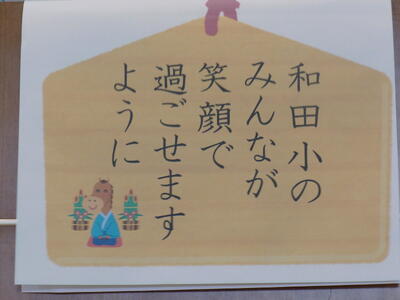 和田小の
みんなが
笑顔で
過ごせます
ように